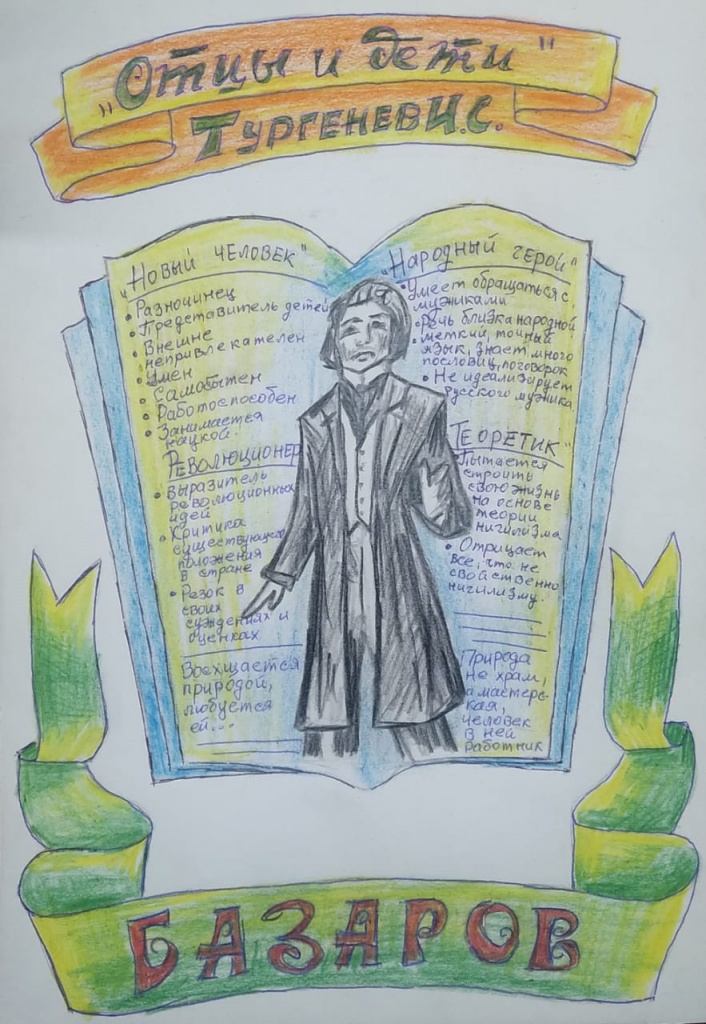 „Отцы и дети"
Тургенев И.С.
„Новый человек"
• Разночинец
• Представитель детей
• Внешне
непривлекателен
• Умен
• Самобытен
• Работоспособен
• Занимается
наукой.
Революционер
• Выразитель
революционных
идей
• Критика
существующего
положения
в стране
• Резок в
своих
суждениях и
оценках
Восхищается
природой,
любуется
ей...
„Народный герой"
• Умеет обращаться с
мужиками
• Речь близка народной
меткий, точный
язык, знает много
пословиц, поговорок
• Не идеализирует
русского мужика
Теоретик"
Пытается
строить
свою жизнь
на основе
теории
нигилизма
• Отрицает
все, что не
свойственно
нигилизму.
Природа
не храм,
а мастерс-
кая,
человек
в ней
работник
БАЗАРОВ